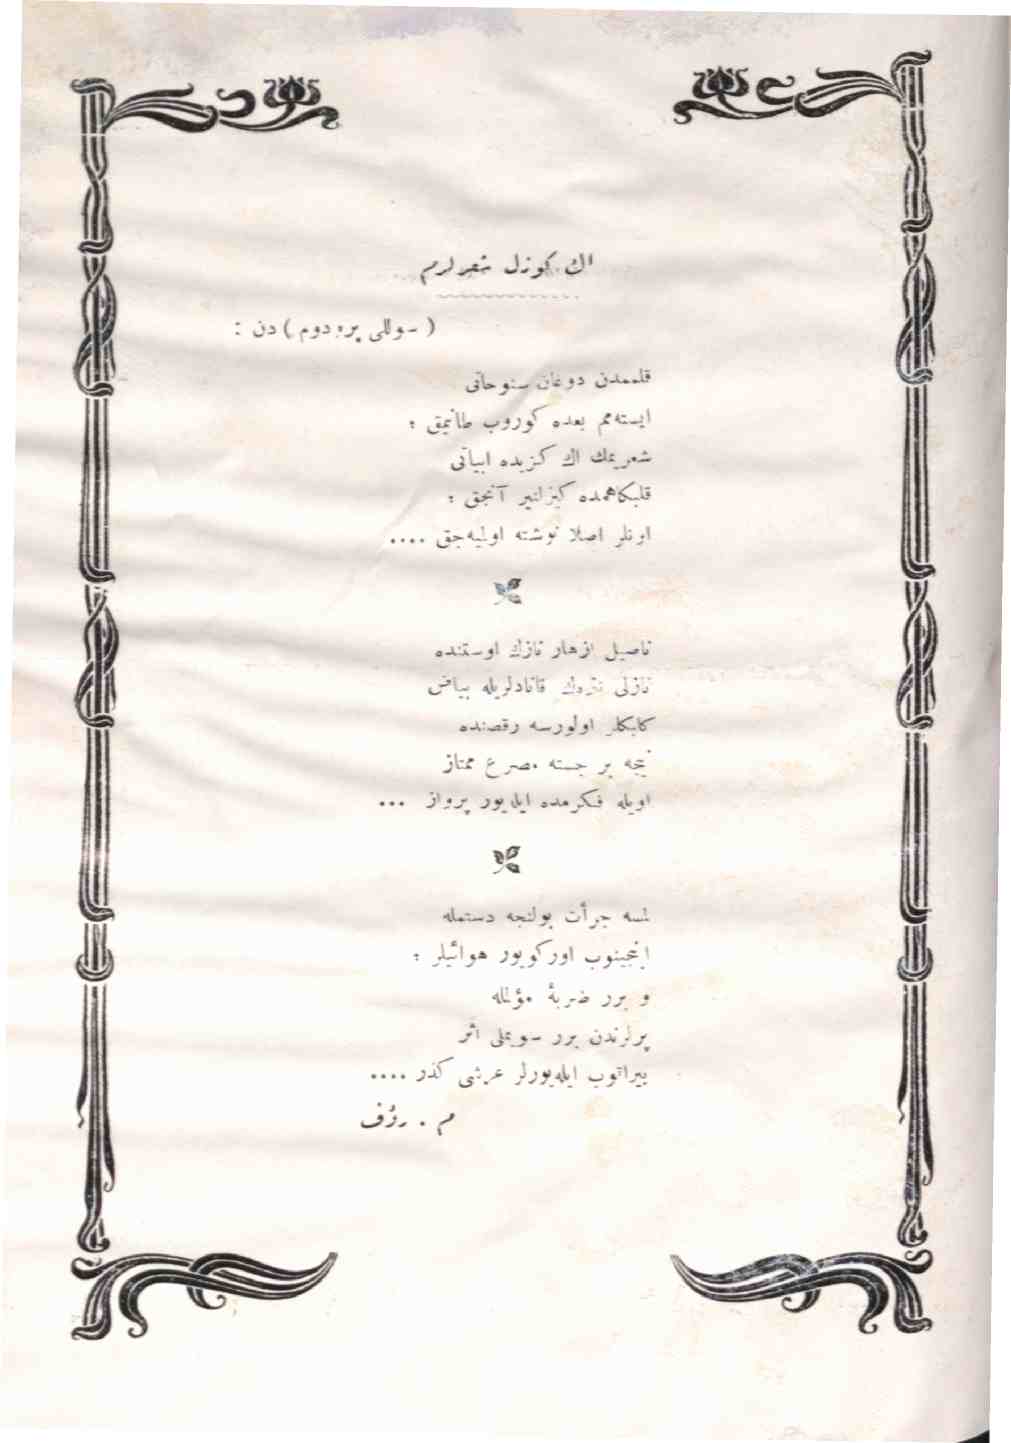 اك كوزل شعرلرم
( سوللی پره دوم ) دن :
قلممدن دوغان سنوحاتی
ايسته‌مم بعده كوروب طانيمق ؛
شعريمك اك كزيده ابياتی
قلبكاهمده كيزلنير آنجق ؛
اونلر اصلا نوشته اولميه‌جق ....
ناصيل ازهار نازك اوستنده
نازلی تتره‌ك قانادلريله بياض
كلبكلر اولورسه رقصنده
نيجه بر جسته مصرع ممتاز
اويله فكرمده ايليور پرواز ...
لمسه جرأت بولنجه دستمله
اينجينوب اوركويور هوائيلر ؛
و برر ضربهٔ مؤلمله
پرلرندن برر سويملی اثر
بيراقوب ايله‌يورلر عرشی كذر ....
م . رؤف